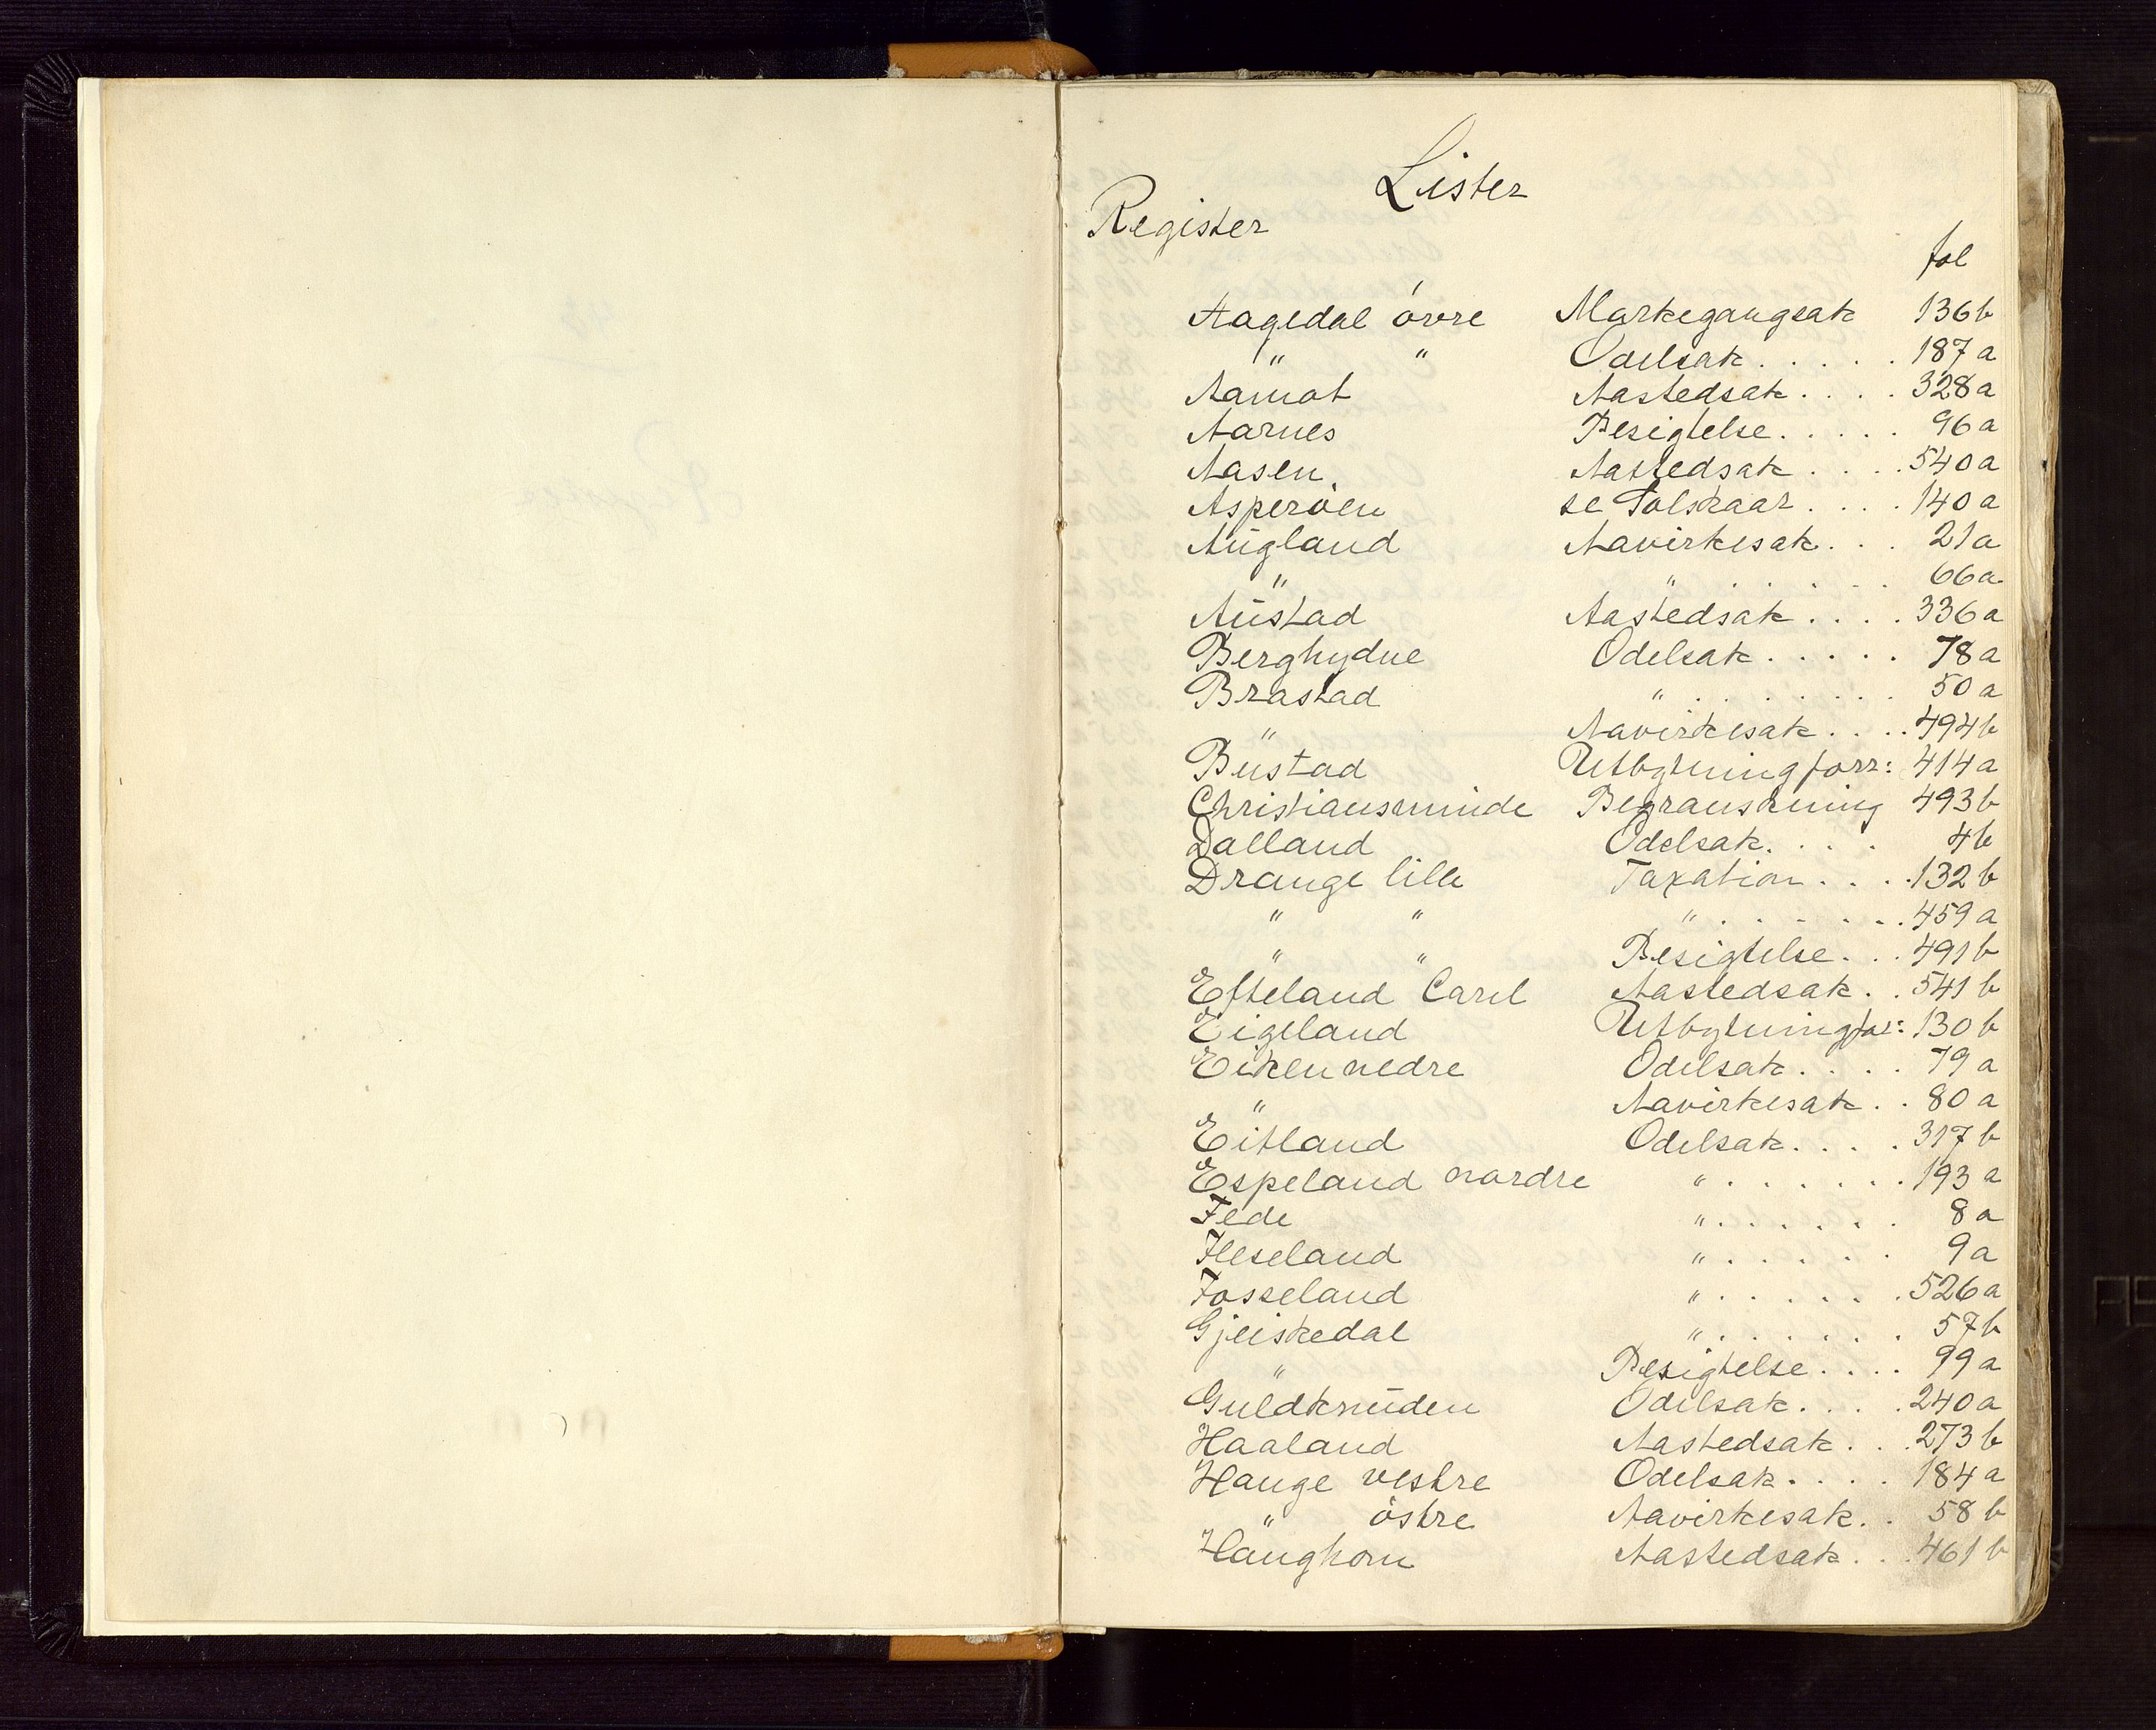 Lister
Register
fol
Aagedal övre Markegangsak 136 b
" " Odelsak . . . . . 187 a
Aamot Aastedsak . . . . 328 a
Aarnes Besigtelse . . . . . 96 a
Aasen Aastedsak . . . . 540 a
Asperöen se Tolskaar . . . . 140 a
Augland Aavirkesak . . . 21 a
" " . . . . . 66 a
Austad Aastedsak . . . . 336 a
Berghydne Odelsak . . . . . 78 a
Brastad " . . . . . . . 50 a
" Aavirkesak . . . . 494 b
Bustad Utbytningforr: 414 a
Christiansminde Begranskning 493 b
Dalland Odelsak . . . . 4 b
Drange lille Taxation . . . . 132 b
" " " . . . . . . . 459 a
" " Besigtelse . . . 491 b
Efteland Carel Aastedsak . . 541 b
Eigeland Utbytningfor: 130 b
Eiken nedre Odelsak . . . . 79 a
" Aavirkesak . . 80 a
Eitland Odelsak . . . . 317 b
Espeland nordre " . . . . . . . 193 a
Fede " . . . . . . 8 a
Fleseland " . . . . . . 9 a
Fosseland " . . . . . . 526 a
Gjeiskedal " . . . . . . 57 b
" Besigtelse . . . . 99 a
Guldknuden Odelsak . . . . 240 a
Haaland Aastedsak . . . 273 b
Hauge vestre Odelsak . . . . 184 a
" östre Aavirkesak . . 58 b
Haughom Aastedsak . . . 461 b